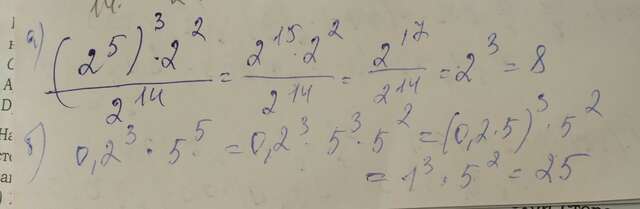 14.
а) ((2^5)^3 · 2^2)/2^14 = (2^15 · 2^2)/2^14 = 2^17/2^14 = 2^3 = 8
б) 0,2^3 · 5^5 = 0,2^3 · 5^3 · 5^2 = (0,2 · 5)^3 · 5^2
= 1^3 · 5^2 = 25